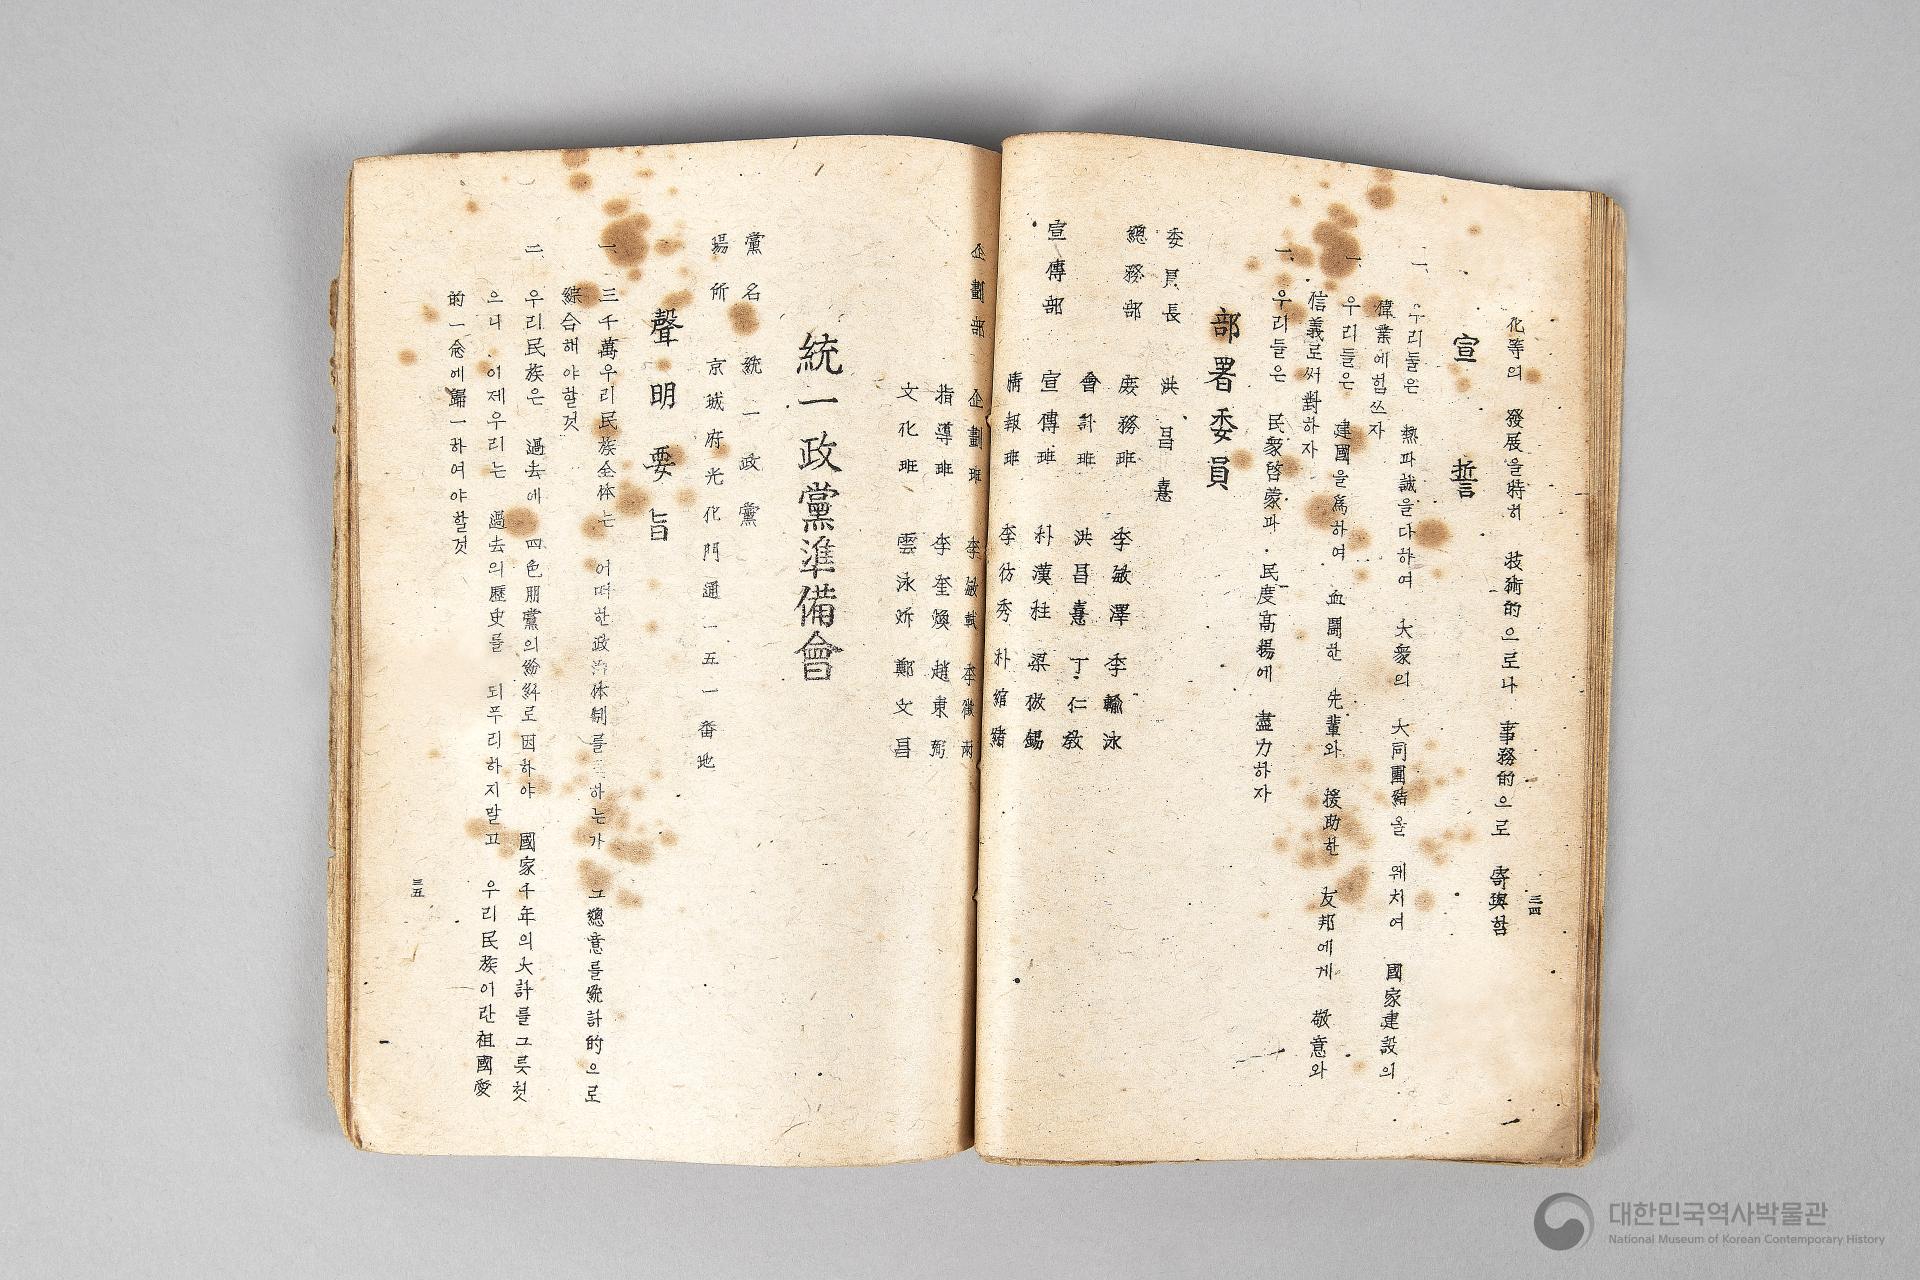 三四
化等의 發展을特히 技術的으로나 事務的으로 寄與함
宣誓
一、우리들은 熱과誠을다하여 大衆의 大同團結을 웨치여 國家建設의
偉業에힘쓰자
一、우리들은 建國을爲하여 血鬪한 先輩와 援助한 友邦에게 敬意와
信義로써對하자
一、우리들은 民衆啓蒙과 民度高揚에 盡力하자
部署委員
委員長 洪昌憙
總務部 庶務班 李敏澤 李輸泳
會計班 洪昌憙 丁仁敎
宣傳部 宣傳班 朴漢柱 梁 錫
情報班 李彷秀 朴綰緖
企劃部 企劃班 李敏軾 李徵雨
指導班 李奎煥 趙東弼
文化班 雲泳 鄭文昌
統一政黨準備會
黨名 統一政黨
場所 京城府光化門通一五一番地
聲明要旨
一、三千萬우리民族全体는 어떠한政治体制를 하는가 그總意를統計的으로
綜合해야할것
二、우리民族은 過去에 四色朋黨의紛糾로因하야 國家千年의大計를그릇첫
으니 이제우리는 過去의歷史를 되푸리하지말고 우리民族이란祖國愛
的一念에歸一하여야할것
三五
대한민국역사박물관
National Museum of Korean Contemporary History